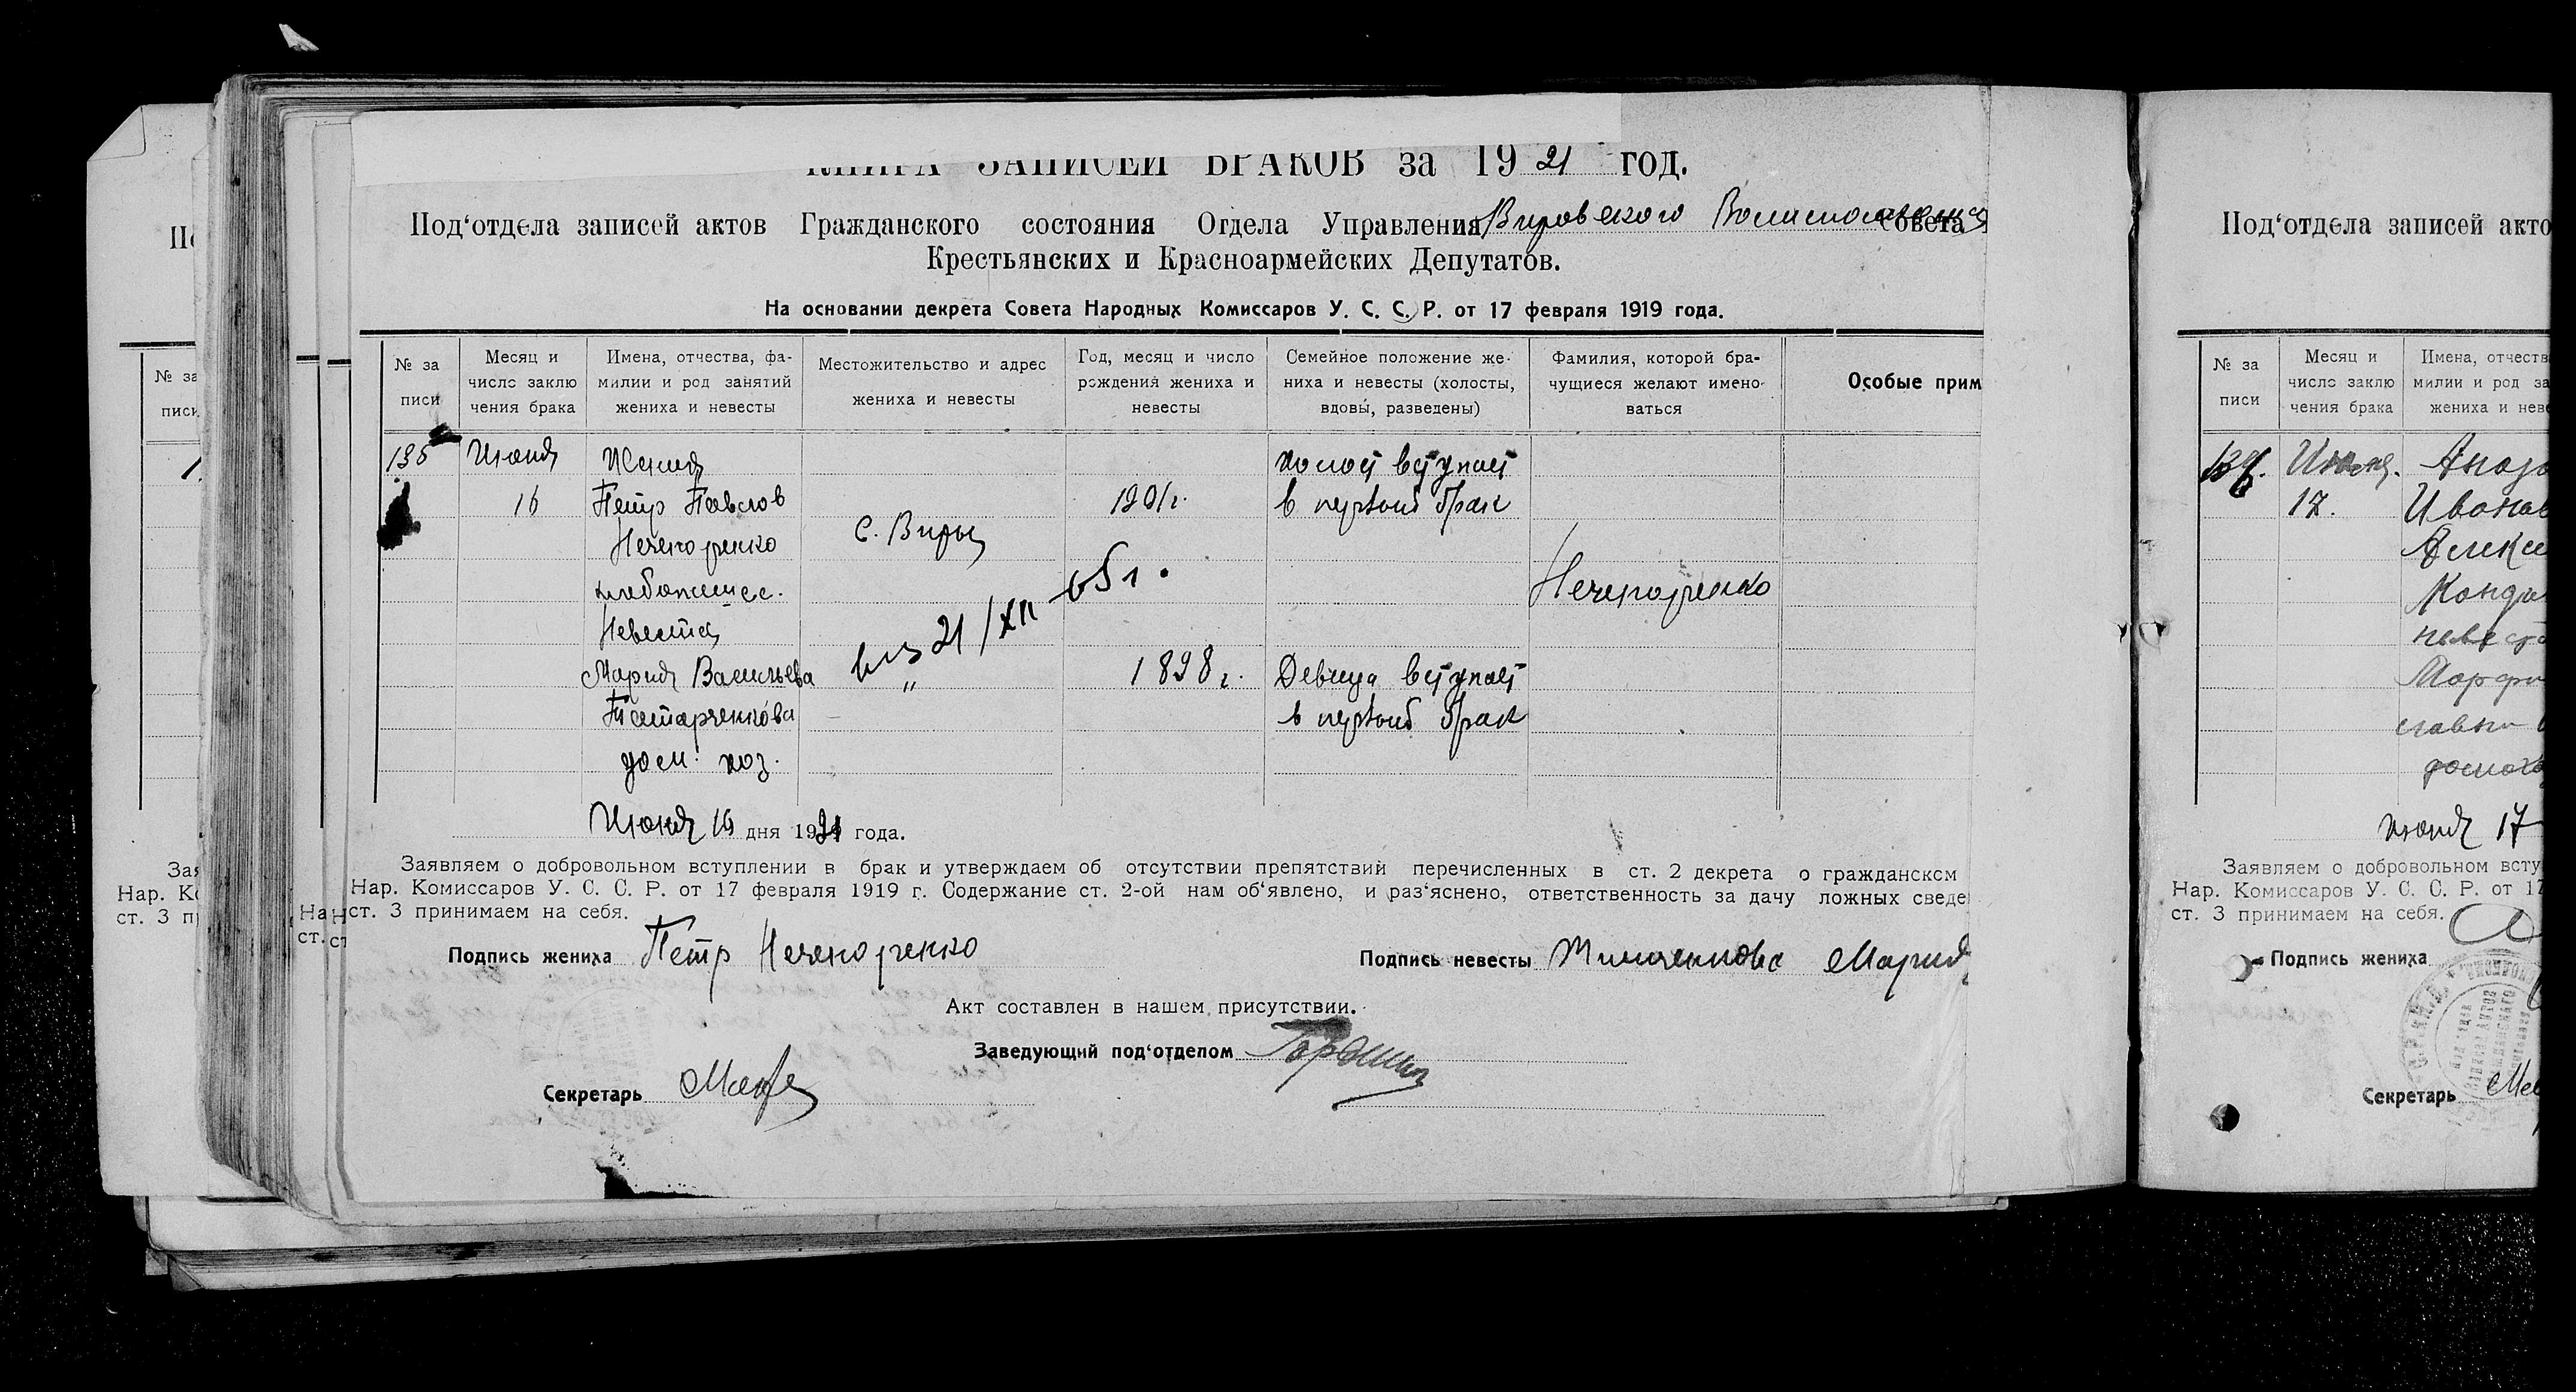 КНИГА ЗАПИСЕЙ БРАКОВ за 1921 год.
Под‘отдела записей актов Гражданского состояния Отдела Управления Вировского Совета
Крестьянских и Красноармейских Депутатов.
На основании декрета Совета Народных Комиссаров У. С. С. Р. от 17 февраля 1919 года.
№ за писи
Месяц и число заклю чения брака
Имена, отчества, фа- милии и род занятий жениха и невесты
Местожительство и адрес жениха и невесты
Год, месяц и число рождения жениха и невесты
Семейное положение же- ниха и невесты (холосты, вдовы, разведены)
Фамилия, которой бра- чущиеся желают имено- ваться
Особые прим
135 Июня Жених холост вступает
16 Петр Павлов 1901г. в первый брак
Нечепоренко с. Виры
хлебопашес. Нечепоренко
65 г.
21/XII
Невеста
Мария Васильева „ 1898 г. Девица вступает
в первый брак
дом. хоз.
Июня 16 дня 1921 года.
Заявляем о добровольном вступлении в брак и утверждаем об отсутствии препятствий перечисленных в ст. 2 декрета о гражданском
Нар. Комиссаров У. С. С. Р. от 17 февраля 1919 г. Содержание ст. 2-ой нам об‘явлено, и раз‘яснено, ответственность за дачу ложных сведе
ст. 3 принимаем на себя.
Подпись жениха Петр Нечепоренко
Подпись невесты Мария
Акт составлен в нашем присутствии.
Заведующий под‘отделом
Секретарь
Под‘отдела записей акто
№ за писи
Месяц и число заклю чения брака
Имена, отчеств милии и род за жениха и неве
Июня
17. Иванов
Алексе
невеста
июня 17
Заявляем о добровольном всту
Нар. Комиссаров У. С. С. Р. от 17
ст. 3 принимаем на себя.
Подпись жениха
Секретарь
№ за
писи
Зая
Нар. Ко
ст. 3 п